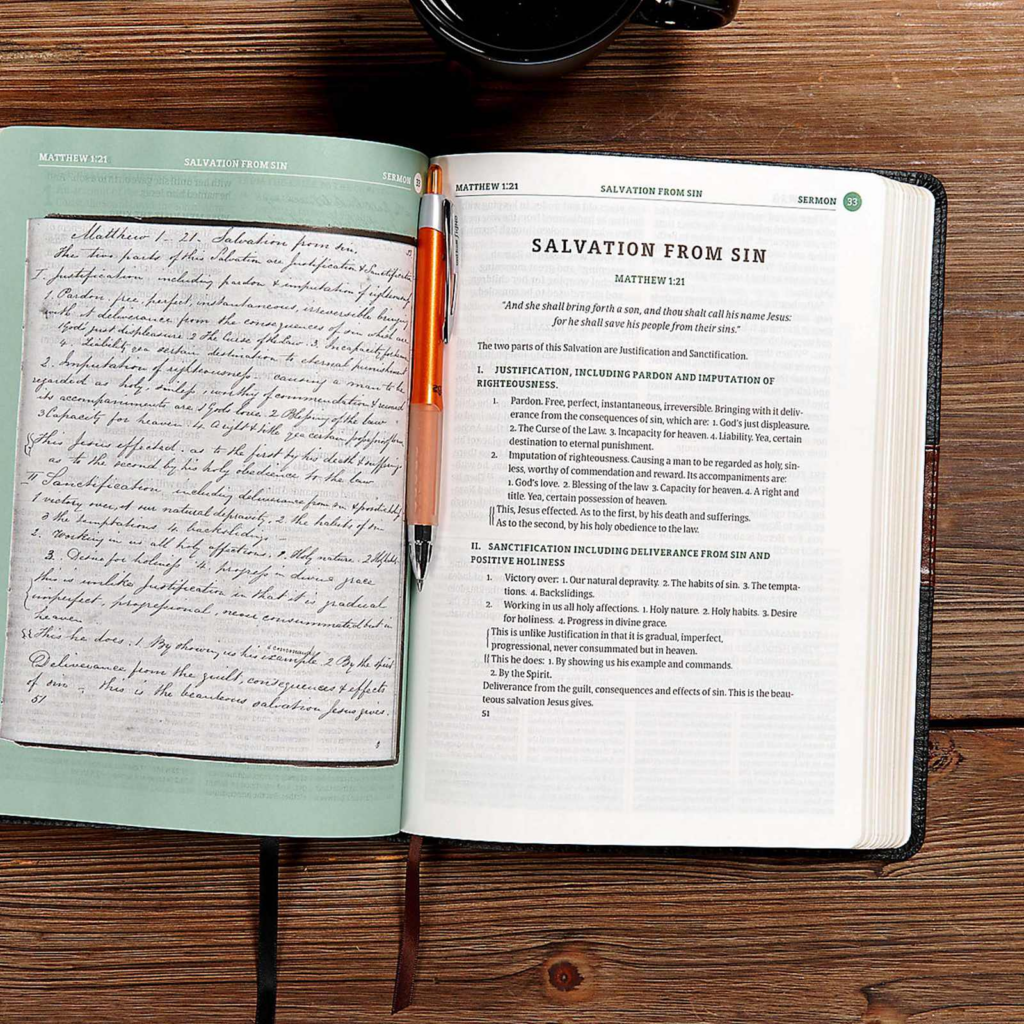 MATTHEW 1:21 SALVATION FROM SIN SERMON 33
Matthew 1 - 21 - Salvation from sin.
The two parts of this Salvation are Justification & Sanctification
I. Justification including pardon & imputation of righteousness
1. Pardon, free, perfect, instantaneous, irreversible bringing
with it deliverance from the consequences of sin which are
1 God's just displeasure 2 The Curse of the Law. 3. Incapacity for heaven
4. Liability yea certain destination to eternal punishment
2. Imputation of righteousness. causing a man to be
regarded as holy, sinless, worthy of commendation & reward
its accompaniments are 1 Gods love. 2 Blessing of the law
3 Capacity for heaven. 4. A right & title yea certain possession
This Jesus effected. as to the first by his death & sufferings
as to the second by his holy obedience to the law
II Sanctification, including deliverance from sin & positive
1 victory over, our natural depravity. 2. the habits of sin
3 the temptations 4 backslidings -
2. Working in us all holy affections. 1. Holy nature. 2 Holy habits
3. Desire for holiness 4. progress in divine grace
this is unlike justification in that it is gradual
imperfect, progressional, never consummated but in
heaven
This he does. 1. By showing us his example & commands 2 By the spirit
Deliverance from the guilt, consequences & effects
of sin - this is the beauteous salvation Jesus gives.
51
MATTHEW 1:21 SALVATION FROM SIN SERMON 33
SALVATION FROM SIN
MATTHEW 1:21
"And she shall bring forth a son, and thou shalt call his name Jesus:
for he shall save his people from their sins."
The two parts of this Salvation are Justification and Sanctification.
I. JUSTIFICATION, INCLUDING PARDON AND IMPUTATION OF
RIGHTEOUSNESS.
1. Pardon. Free, perfect, instantaneous, irreversible. Bringing with it deliv-
erance from the consequences of sin, which are: 1. God's just displeasure.
2. The Curse of the Law. 3. Incapacity for heaven. 4. Liability. Yea, certain
destination to eternal punishment.
2. Imputation of righteousness. Causing a man to be regarded as holy, sin-
less, worthy of commendation and reward. Its accompaniments are:
1. God's love. 2. Blessing of the law 3. Capacity for heaven. 4. A right and
title. Yea, certain possession of heaven.
This, Jesus effected. As to the first, by his death and sufferings.
As to the second, by his holy obedience to the law.
II. SANCTIFICATION INCLUDING DELIVERANCE FROM SIN AND
POSITIVE HOLINESS
1. Victory over: 1. Our natural depravity. 2. The habits of sin. 3. The tempta-
tions. 4. Backslidings.
2. Working in us all holy affections. 1. Holy nature. 2. Holy habits. 3. Desire
for holiness. 4. Progress in divine grace.
This is unlike Justification in that it is gradual, imperfect,
progressional, never consummated but in heaven.
This he does: 1. By showing us his example and commands.
2. By the Spirit.
Deliverance from the guilt, consequences and effects of sin. This is the beau-
teous salvation Jesus gives.
51